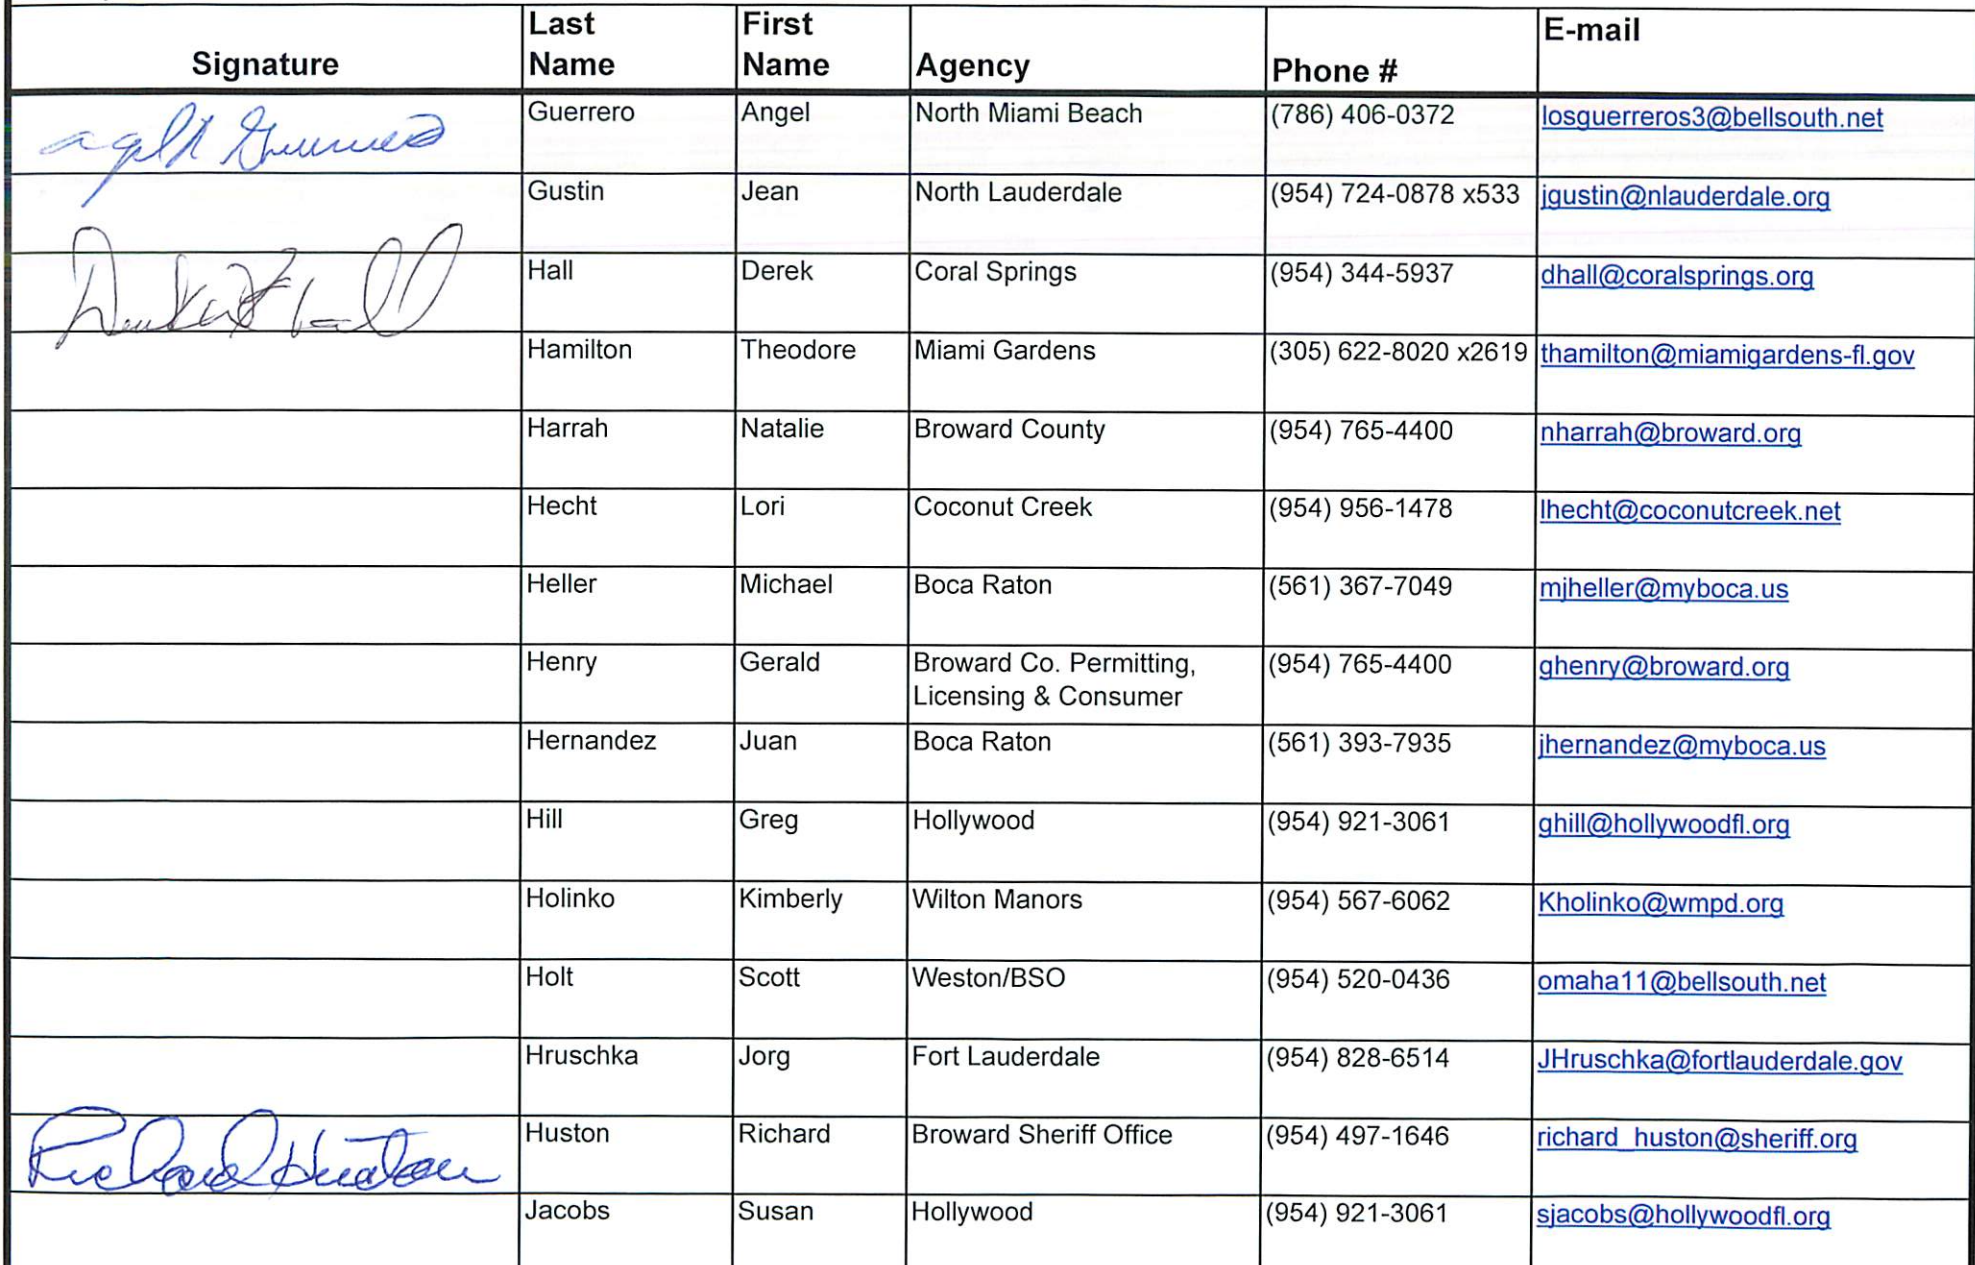 Signature Last Name First Name Agency Phone # E-mail
Guerrero Angel North Miami Beach (786) 406-0372 losguerreros3@bellsouth.net
Gustin Jean North Lauderdale (954) 724-0878 x533 jgustin@nlauderdale.org
Hall Derek Coral Springs (954) 344-5937 dhall@coralsprings.org
Hamilton Theodore Miami Gardens (305) 622-8020 x2619 thamilton@miamigardens-fl.gov
Harrah Natalie Broward County (954) 765-4400 nharrah@broward.org
Hecht Lori Coconut Creek (954) 956-1478 lhecht@coconutcreek.net
Heller Michael Boca Raton (561) 367-7049 mjheller@myboca.us
Henry Gerald Broward Co. Permitting, (954) 765-4400 ghenry@broward.org
Licensing & Consumer
Hernandez Juan Boca Raton (561) 393-7935 jhernandez@myboca.us
Hill Greg Hollywood (954) 921-3061 ghill@hollywoodfl.org
Holinko Kimberly Wilton Manors (954) 567-6062 Kholinko@wmpd.org
Holt Scott Weston/BSO (954) 520-0436 omaha11@bellsouth.net
Hruschka Jorg Fort Lauderdale (954) 828-6514 JHruschka@fortlauderdale.gov
Richard Huston Huston Richard Broward Sheriff Office (954) 497-1646 richard_huston@sheriff.org
Jacobs Susan Hollywood (954) 921-3061 sjacobs@hollywoodfl.org